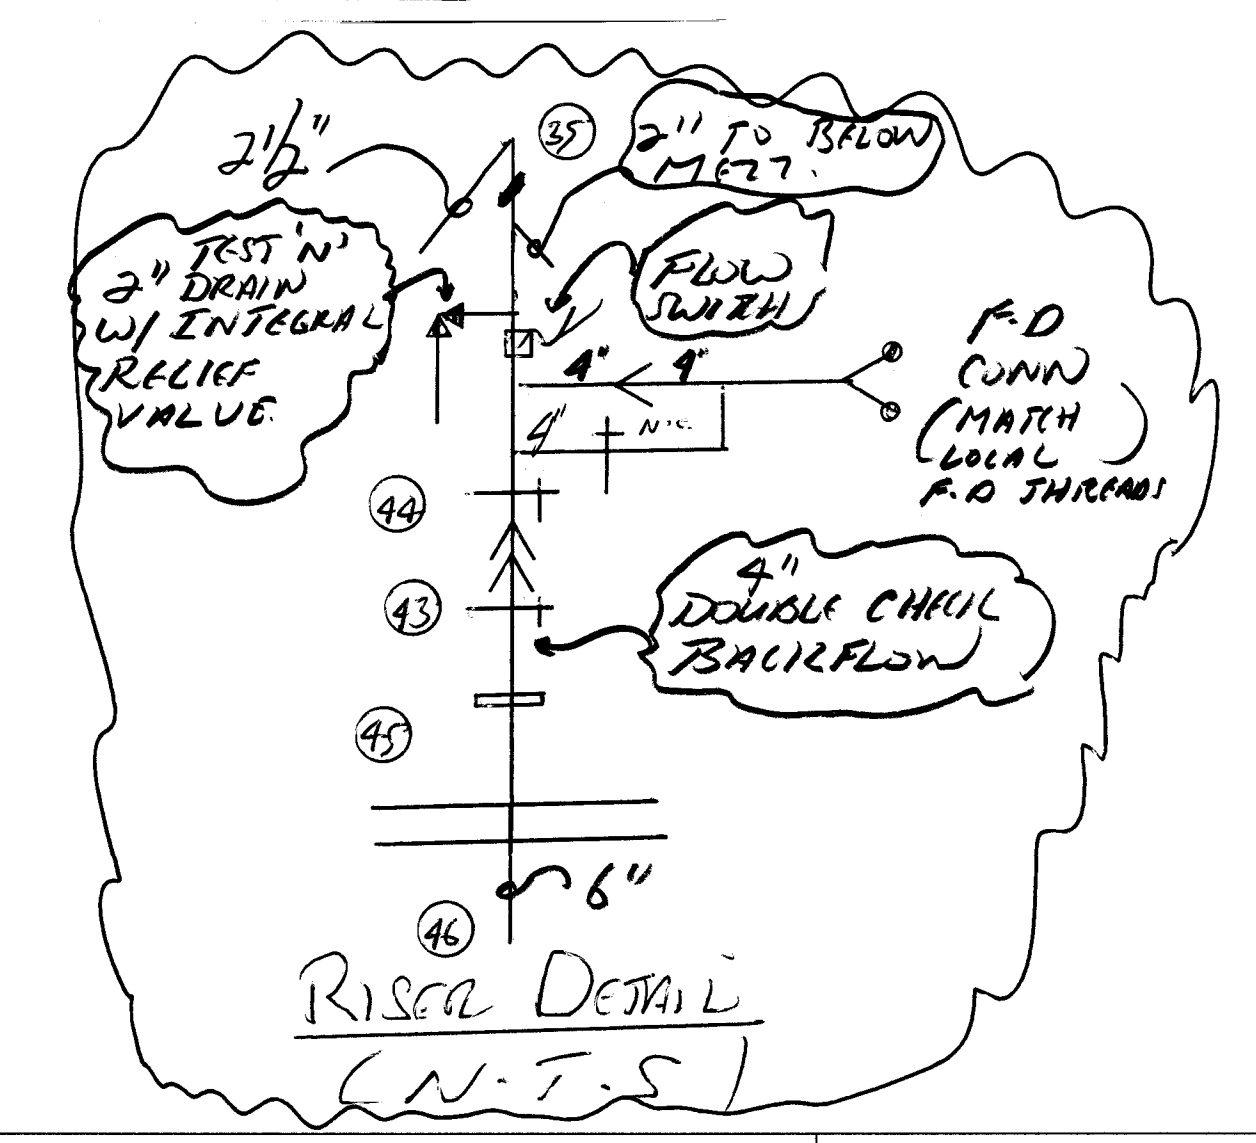 35
2 1/2"
2" TO BELOW
MEZZ.
TEST 'N'
2" DRAIN
W/ INTEGRAL
RELIEF
VALUE
FLOW
SWITCH
4" 4"
F.D
CONN
(MATCH
LOCAL)
F.D THREADS
4"
N.C.
44
4"
DOUBLE CHECK
BACKFLOW
43
45
6"
46
RISER DETAIL
(N.T.S)